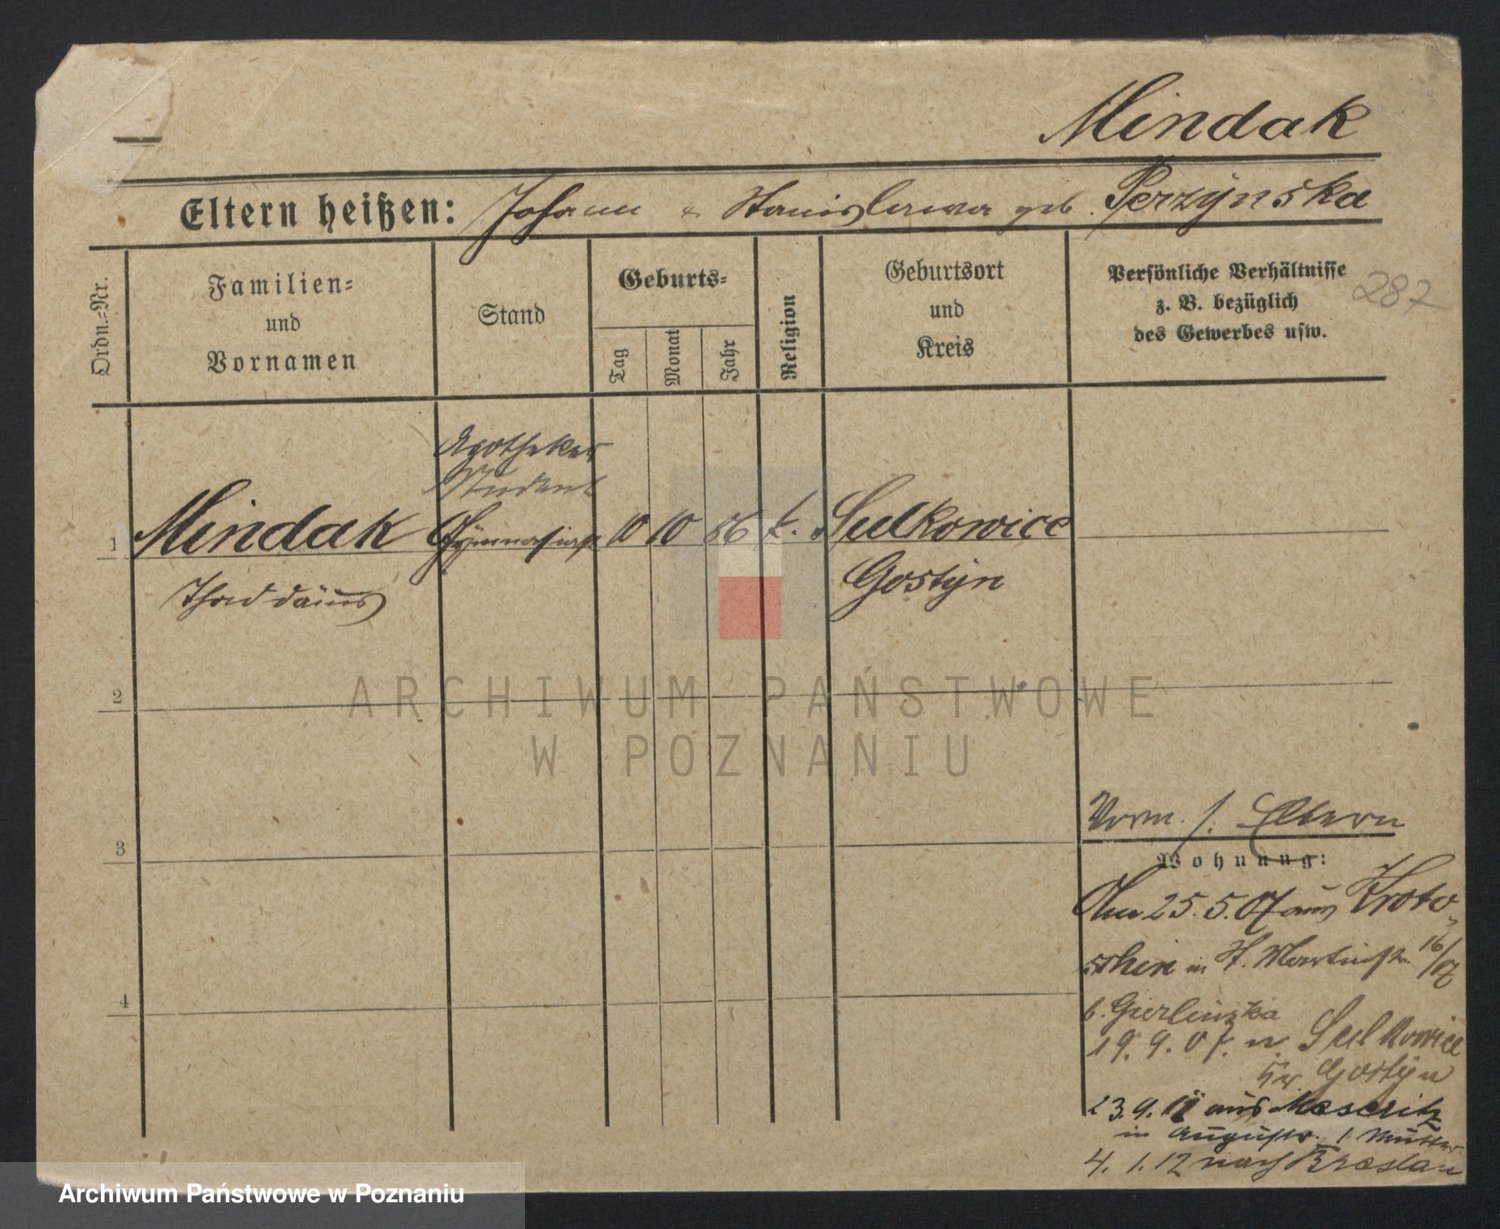 Mindak
Eltern heißen: Johann & Stanislawa geb. Perzynska
Ordn.-Nr.
Familien-
und
Vornamen
Stand
Geburts-
Tag
Monat
Jahr
Religion
Geburtsort
und
Kreis
Persönliche Verhältnisse
z. B. bezüglich
des Gewerbes usw.
287
Apotheker
Student
1 Mindak Gymnasiast 10 10 86 k. Sulkowice
Thaddäus Gostyn
2
ARCHIWUM PAŃSTWOWE
W POZNANIU
3
4
Vorm. s. Eltern
Wohnung:
Am 25.5.07 aus Kroto-
schin in St. Martinstr. 16/07
b. Gierlinzka
19.9.07. n. Sulkowice
Kr. Gostyn
23.9.11 aus Meseritz
in Auguststr. 1 Mutter
4.1.12 nach Breslau
Archiwum Państwowe w Poznaniu